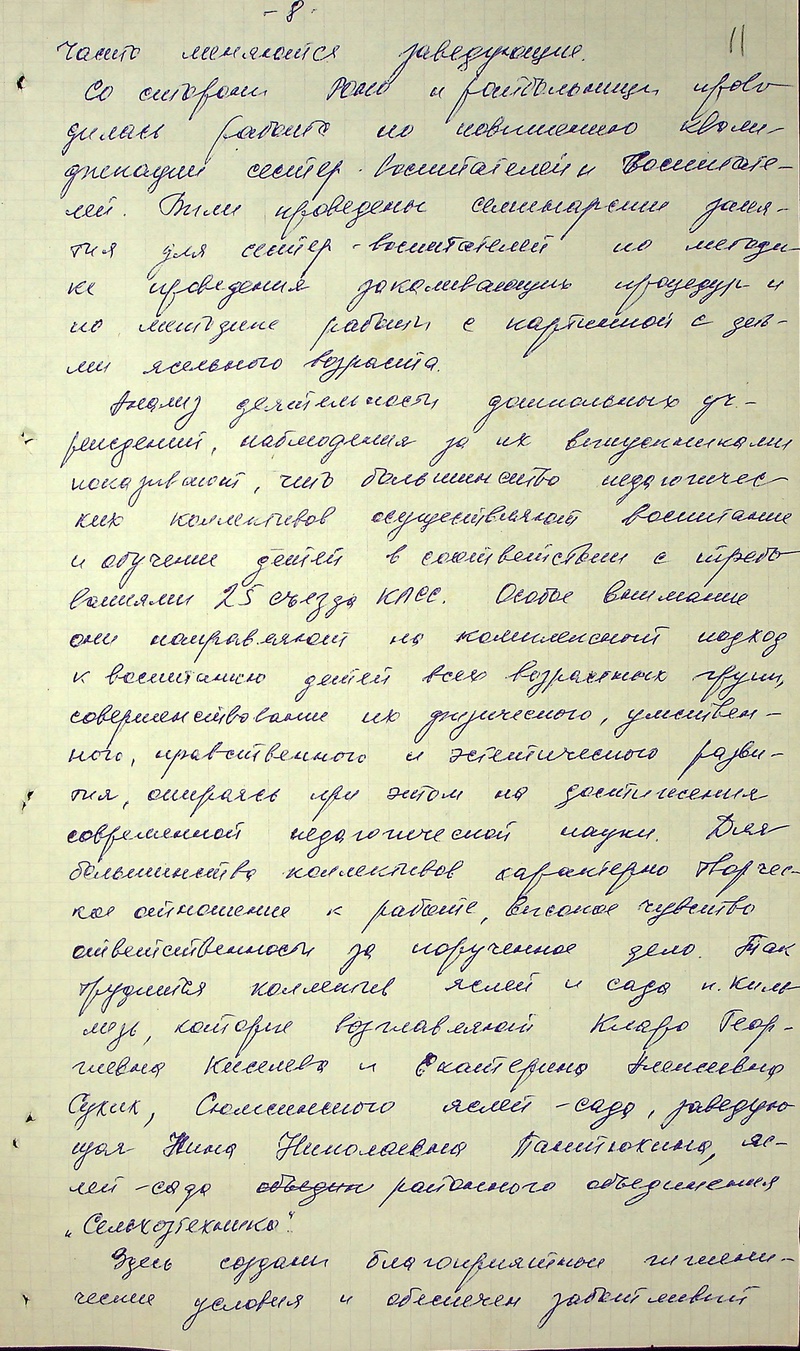 - 8 -
11
часто меняются заведующие.
Со стороны Роно и райбольницы прово-
дилась работа по повышению квали-
фикации сестер-воспитателей и воспитате-
лей. Были проведены семинарские заня-
тия для сестер-воспитателей по методи-
ке проведения закаливающих процедур и
по методике работы с картинкой с деть-
ми ясельного возраста.
Анализ деятельности дошкольных уч-
реждений, наблюдения за их выпускниками
показывают, что большинство педагогичес-
ких коллективов осуществляют воспитание
и обучение детей в соответствии с требо-
ваниями 25 съезда КПСС. Особое внимание
они направляют на комплексный подход
к воспитанию детей всех возрастных групп,
совершенствование их физического, умствен-
ного, нравственного и эстетического разви-
тия, опираясь при этом на достижения
современной педагогической науки. Для
большинства коллективов характерно творчес-
кое отношение к работе, высокое чувство
ответственности за порученное дело. Так
трудится коллектив яслей и сада п. Киль-
мезь, которые возглавляют Клара Геор-
гиевна Киселева и Екатерина Алексеевна
Сухих, Сюмсинского яслей-сада, заведую-
щая Нина Николаевна Пантюхина, яс-
лей-сада объедин районного объединения
„Сельхозтехника".
Здесь созданы благоприятные гигиени-
ческие условия и обеспечен заботливый